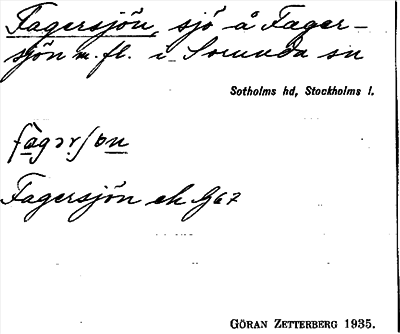 Fagersjön, sjö å Fager-
sjön m. fl. i Sorunda sn
Sotholms hd, Stockholms l.
Fagersjön ek
GÖRAN ZETTERBERG 1935.